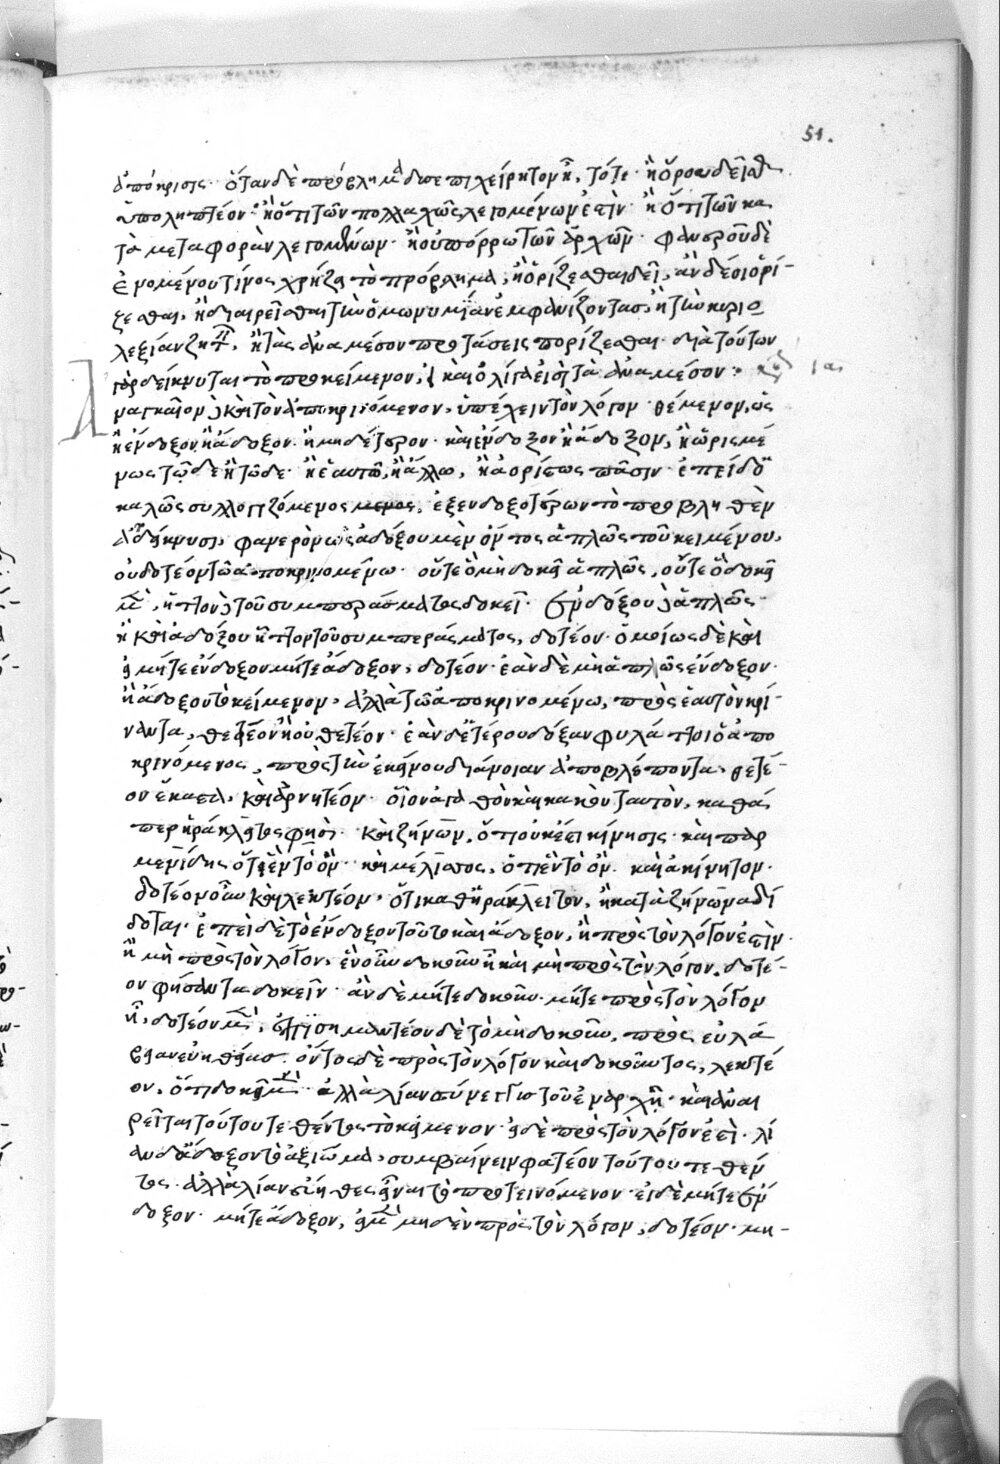 51.
ἀπόκρισις· ὅταν δὲ πρόβλημα δυσεπιχείρητον ᾖ, τότε ἢ ὅρου δεῖσθαι
ὑποληπτέον· ἢ ὅτι τῶν πολλαχῶς λεγομένων ἐστὶν· ἢ ὅτι τῶν κα
τὰ μεταφορὰν λεγομένων· ἢ οὐ πόρρω τῶν ἀρχῶν· φανεροῦ δὲ
γενομένου τίνος χρήζει τὸ πρόβλημα, ἢ ὁρίζεσθαι δεῖ, ἂν δέοι ὁρί-
ζεσθαι, ἢ διαιρεῖσθαι τὴν ὁμωνυμίαν ἐμφανίζοντας,
ἢ τὰς ἀνὰ μέσον προτάσεις πορίζεσθαι· διὰ τούτων
γὰρ δείκνυται τὸ προκείμενον, καὶ ὀλίγα εἰσὶ τὰ ἀνὰ μέσον·
ναγκαῖον καὶ τὸν ἀποκρινόμενον, ὑπέχειν τὸν λόγον· θέμενον, ὡς
ἢ ἔνδοξον ἢ ἄδοξον ἢ μηδέτερον· καὶ ἔνδοξον ἢ ἄδοξον, ἢ ὡρισμέ
νως τῷδε ἢ τῷδε· ἢ ἑαυτῷ, ἢ ἄλλῳ, ἢ ἀορίστως πᾶσιν· ἐπεὶ δ' ὁ
καλῶς συλλογιζόμενος μενος, ἐξ ἐνδοξοτέρων τὸ προβληθὲν
ἀποδείκνυσι, φανερὸν ὡς ἀδόξου μὲν ὄντος ἁπλῶς τοῦ κειμένου,
οὐ δοτέον τῷ ἀποκρινομένῳ· οὔτε ὃ μὴ δοκεῖ ἁπλῶς, οὔτε ὃ δοκεῖ
μὲν, ἧττον δὲ τοῦ συμπεράσματος δοκεῖ· ἐνδόξου δὲ ἁπλῶς·
ἢ καὶ ἀδόξου ἧττον τοῦ συμπεράσματος, δοτέον· ὁμοίως δὲ καὶ
εἰ μήτε ἔνδοξον μήτε ἄδοξον, δοτέον· ἐὰν δὲ μὴ ἁπλῶς ἔνδοξον
ἢ ἄδοξον τὸ κείμενον, ἀλλὰ τῷ ἀποκρινομένῳ, πρὸς ἑαυτὸν κρί-
νοντα, θετέον ἢ οὐ θετέον· ἐὰν δ' ἑτέρου δόξαν φυλάττοι ὁ ἀπο
κρινόμενος, πρὸς τὴν ἐκείνου διάνοιαν ἀποβλέποντα, θετέ-
ον ἕκαστα, καὶ ἀρνητέον· οἷον ἀγαθὸν καὶ κακὸν ταὐτὸν, καθά
περ ἡράκλειτός φησι· καὶ ζήνων, ὅτι οὐκ ἔστι κίνησις· καὶ παρ
μενίδης ὅτι ἓν τὸ ὄν· καὶ μέλισσος, ὅτι ἓν τὸ ὄν· καὶ ἀκίνητον·
δοτέον οὖν καὶ λεκτέον, ὅτι καθ' ἡράκλειτον, ἢ κατὰ ζήνωνα δί
δοται· ἐπεὶ δὲ τὸ ἔνδοξον τοῦτο καὶ ἄδοξον, ἢ πρὸς τὸν λόγον ἐστὶν·
ἢ μὴ πρὸς τὸν λόγον, ἓν οὖν δοκοῦν ᾖ καὶ μὴ πρὸς τὸν λόγον, δοτέ-
ον φήσαντα δοκεῖν· ἂν δὲ μήτε δοκοῦν· μήτε πρὸς τὸν λόγον
ᾖ, δοτέον μὲν, ἐπισημαντέον δὲ τὸ μὴ δοκοῦν, πρὸς εὐλά
βειαν εὐηθείας· ὄντος δὲ πρὸς τὸν λόγον καὶ δοκοῦντος, λεκτέ
ον, ὅτι δοκεῖ μὲν· ἀλλὰ λίαν σύνεγγυς τοῦ ἐν ἀρχῇ· καὶ ἀναι
ρεῖται τούτου τεθέντος τὸ κείμενον· εἰ δὲ πρὸς τὸν λόγον ἐστὶ· λί
αν δ' ἄδοξον τὸ ἀξίωμα, συμβαίνειν φατέον τούτου τεθέν
τος· ἀλλὰ λίαν εὔηθες εἶναι τὸ προτεινόμενον· εἰ δὲ μήτε ἔν
δοξον· μήτε ἄδοξον, εἰ μὲν μηδὲν πρὸς τὸν λόγον, δοτέον· μη-